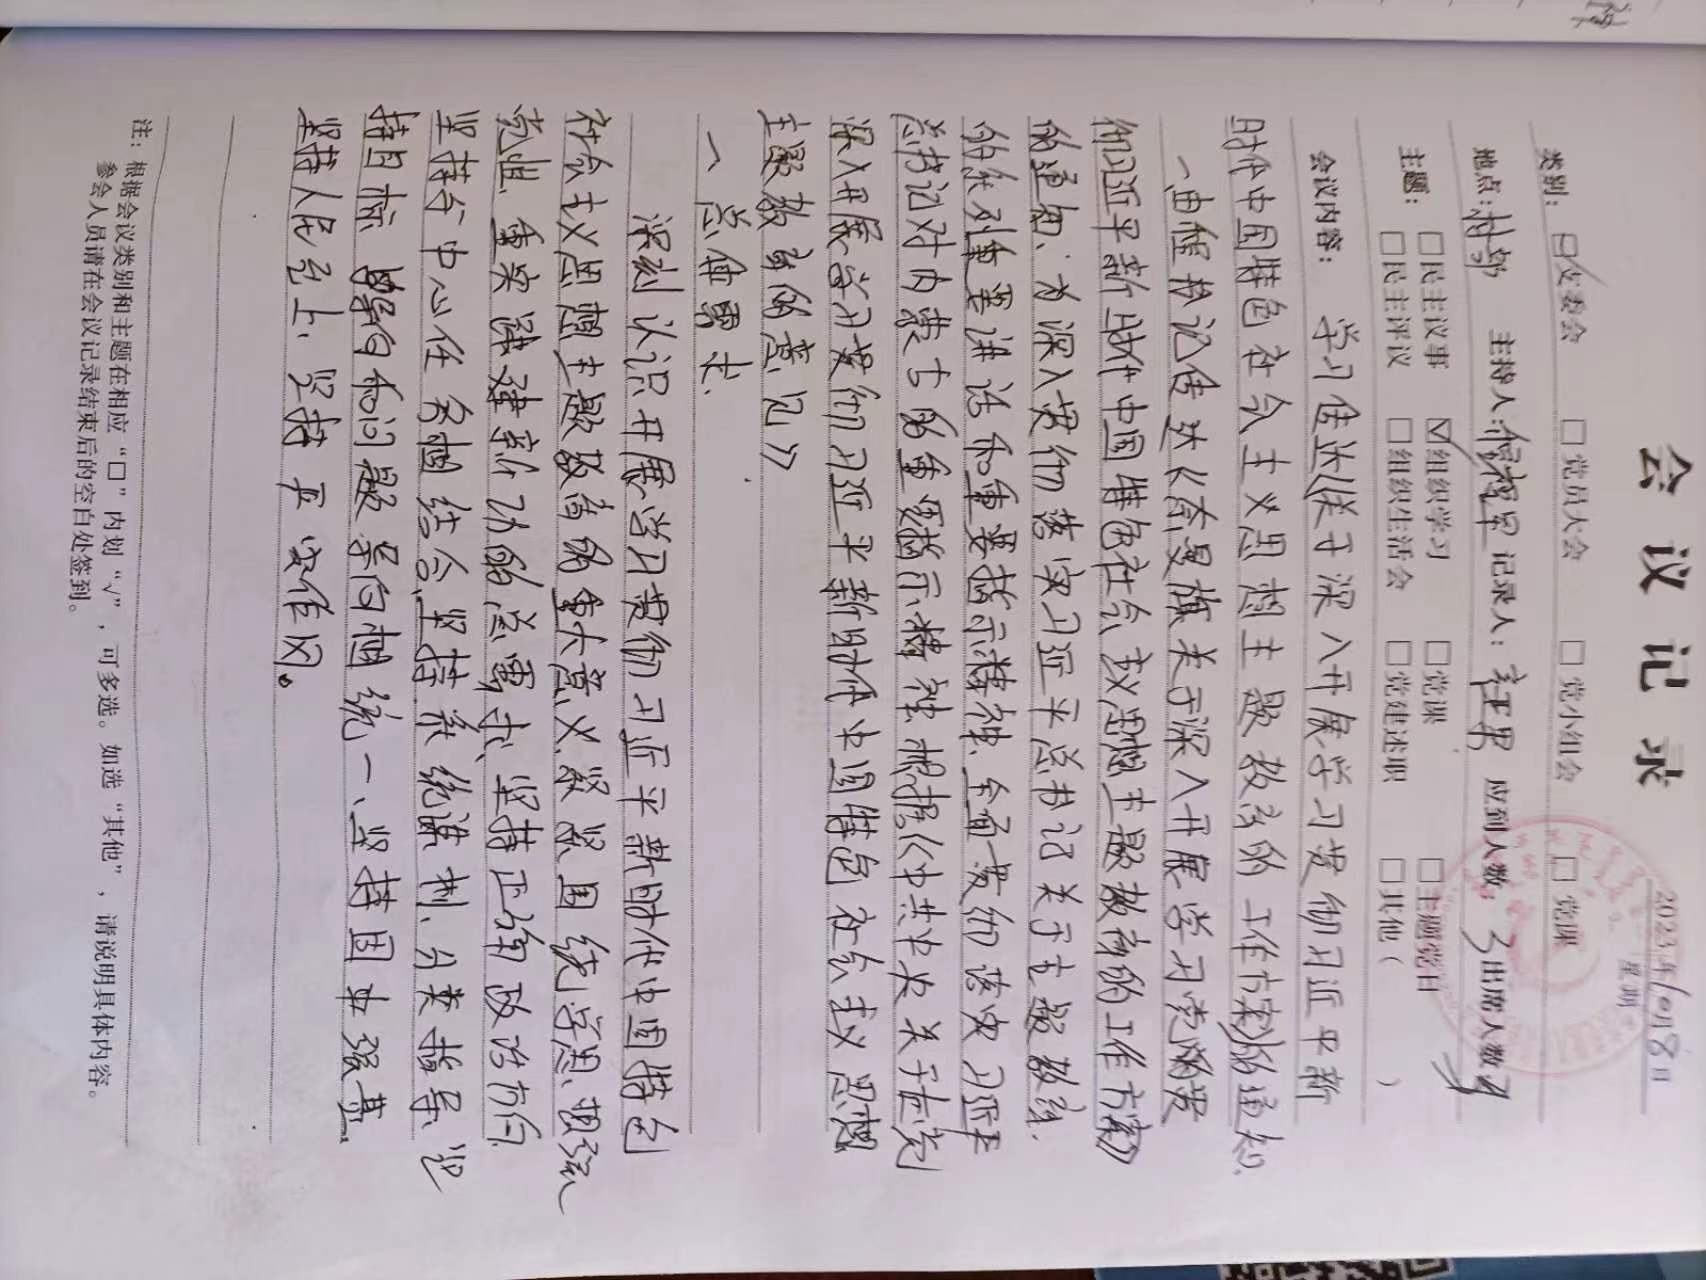 会议记录
2023年10月8日
星期
类别： ☑支委会 □党员大会 □党小组会 □党课
地点：村部 主持人： 记录人： 应到人数：3 出席人数
主题： □民主议事 ☑组织学习 □党课 □主题党日
□民主评议 □组织生活会 □党建述职 □其他（ ）
会议内容： 学习传达《关于深入开展学习贯彻习近平新
时代中国特色社会主义思想主题教育的工作方案》的通知
一、由 书记传达《 旗关于深入开展学习党 贯
彻习近平新时代中国特色社会主义思想主题教育的工作方案》
的通知、为深入贯彻落实习近平总书记关于主题教育
的系列重要讲话和重要指示精神，全面贯彻落实习近平
总书记对内蒙古的重要指示精神，根据《中共中央关于在党
深入开展学习贯彻习近平新时代中国特色社会主义思想
主题教育的意见》
一、总体要求
深刻认识开展学习贯彻习近平新时代中国特色
社会主义思想主题教育的重大意义，紧紧围绕学思想、强
党性、重实践、建新功的总要求，坚持正确政治方向
坚持与中心任务相结合、坚持系统谋划、分类指导、坚
持目标导向和问题导向相统一、坚持固本强基、
坚持人民至上、坚持 实作风。
注：根据会议类别和主题在相应“□”内划“√”，可多选。如选“其他”，请说明具体内容。
参会人员请在会议记录结束后的空白处签到。